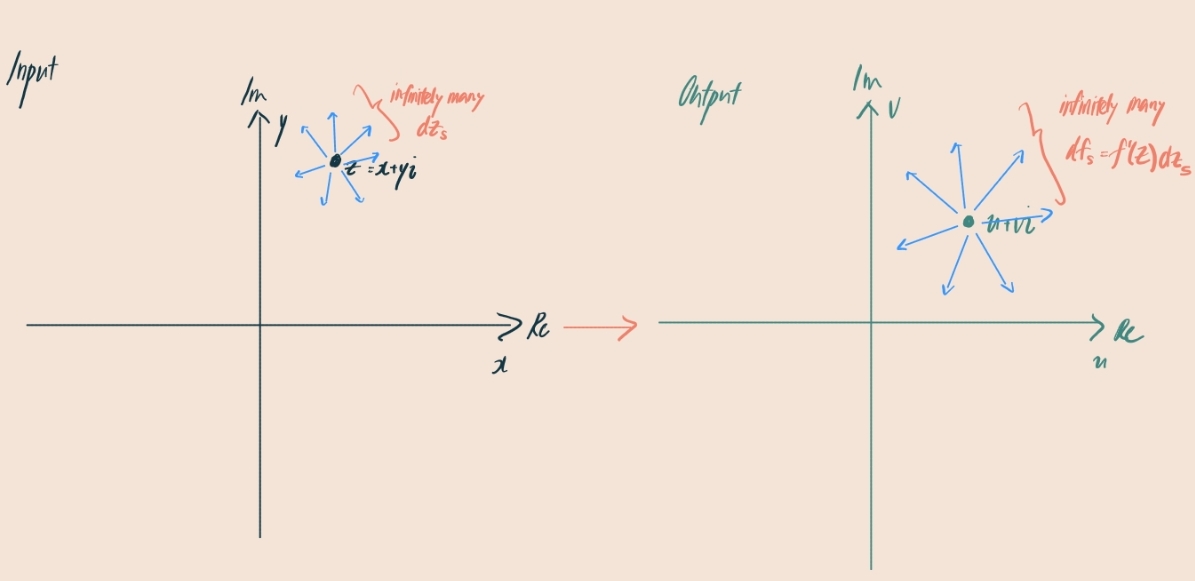 Input
Im
y
infinitely many
dzs
z = x+yi
Re
x
Output
Im
v
infinitely many
dfs = f'(z)dzs
u+vi
Re
u